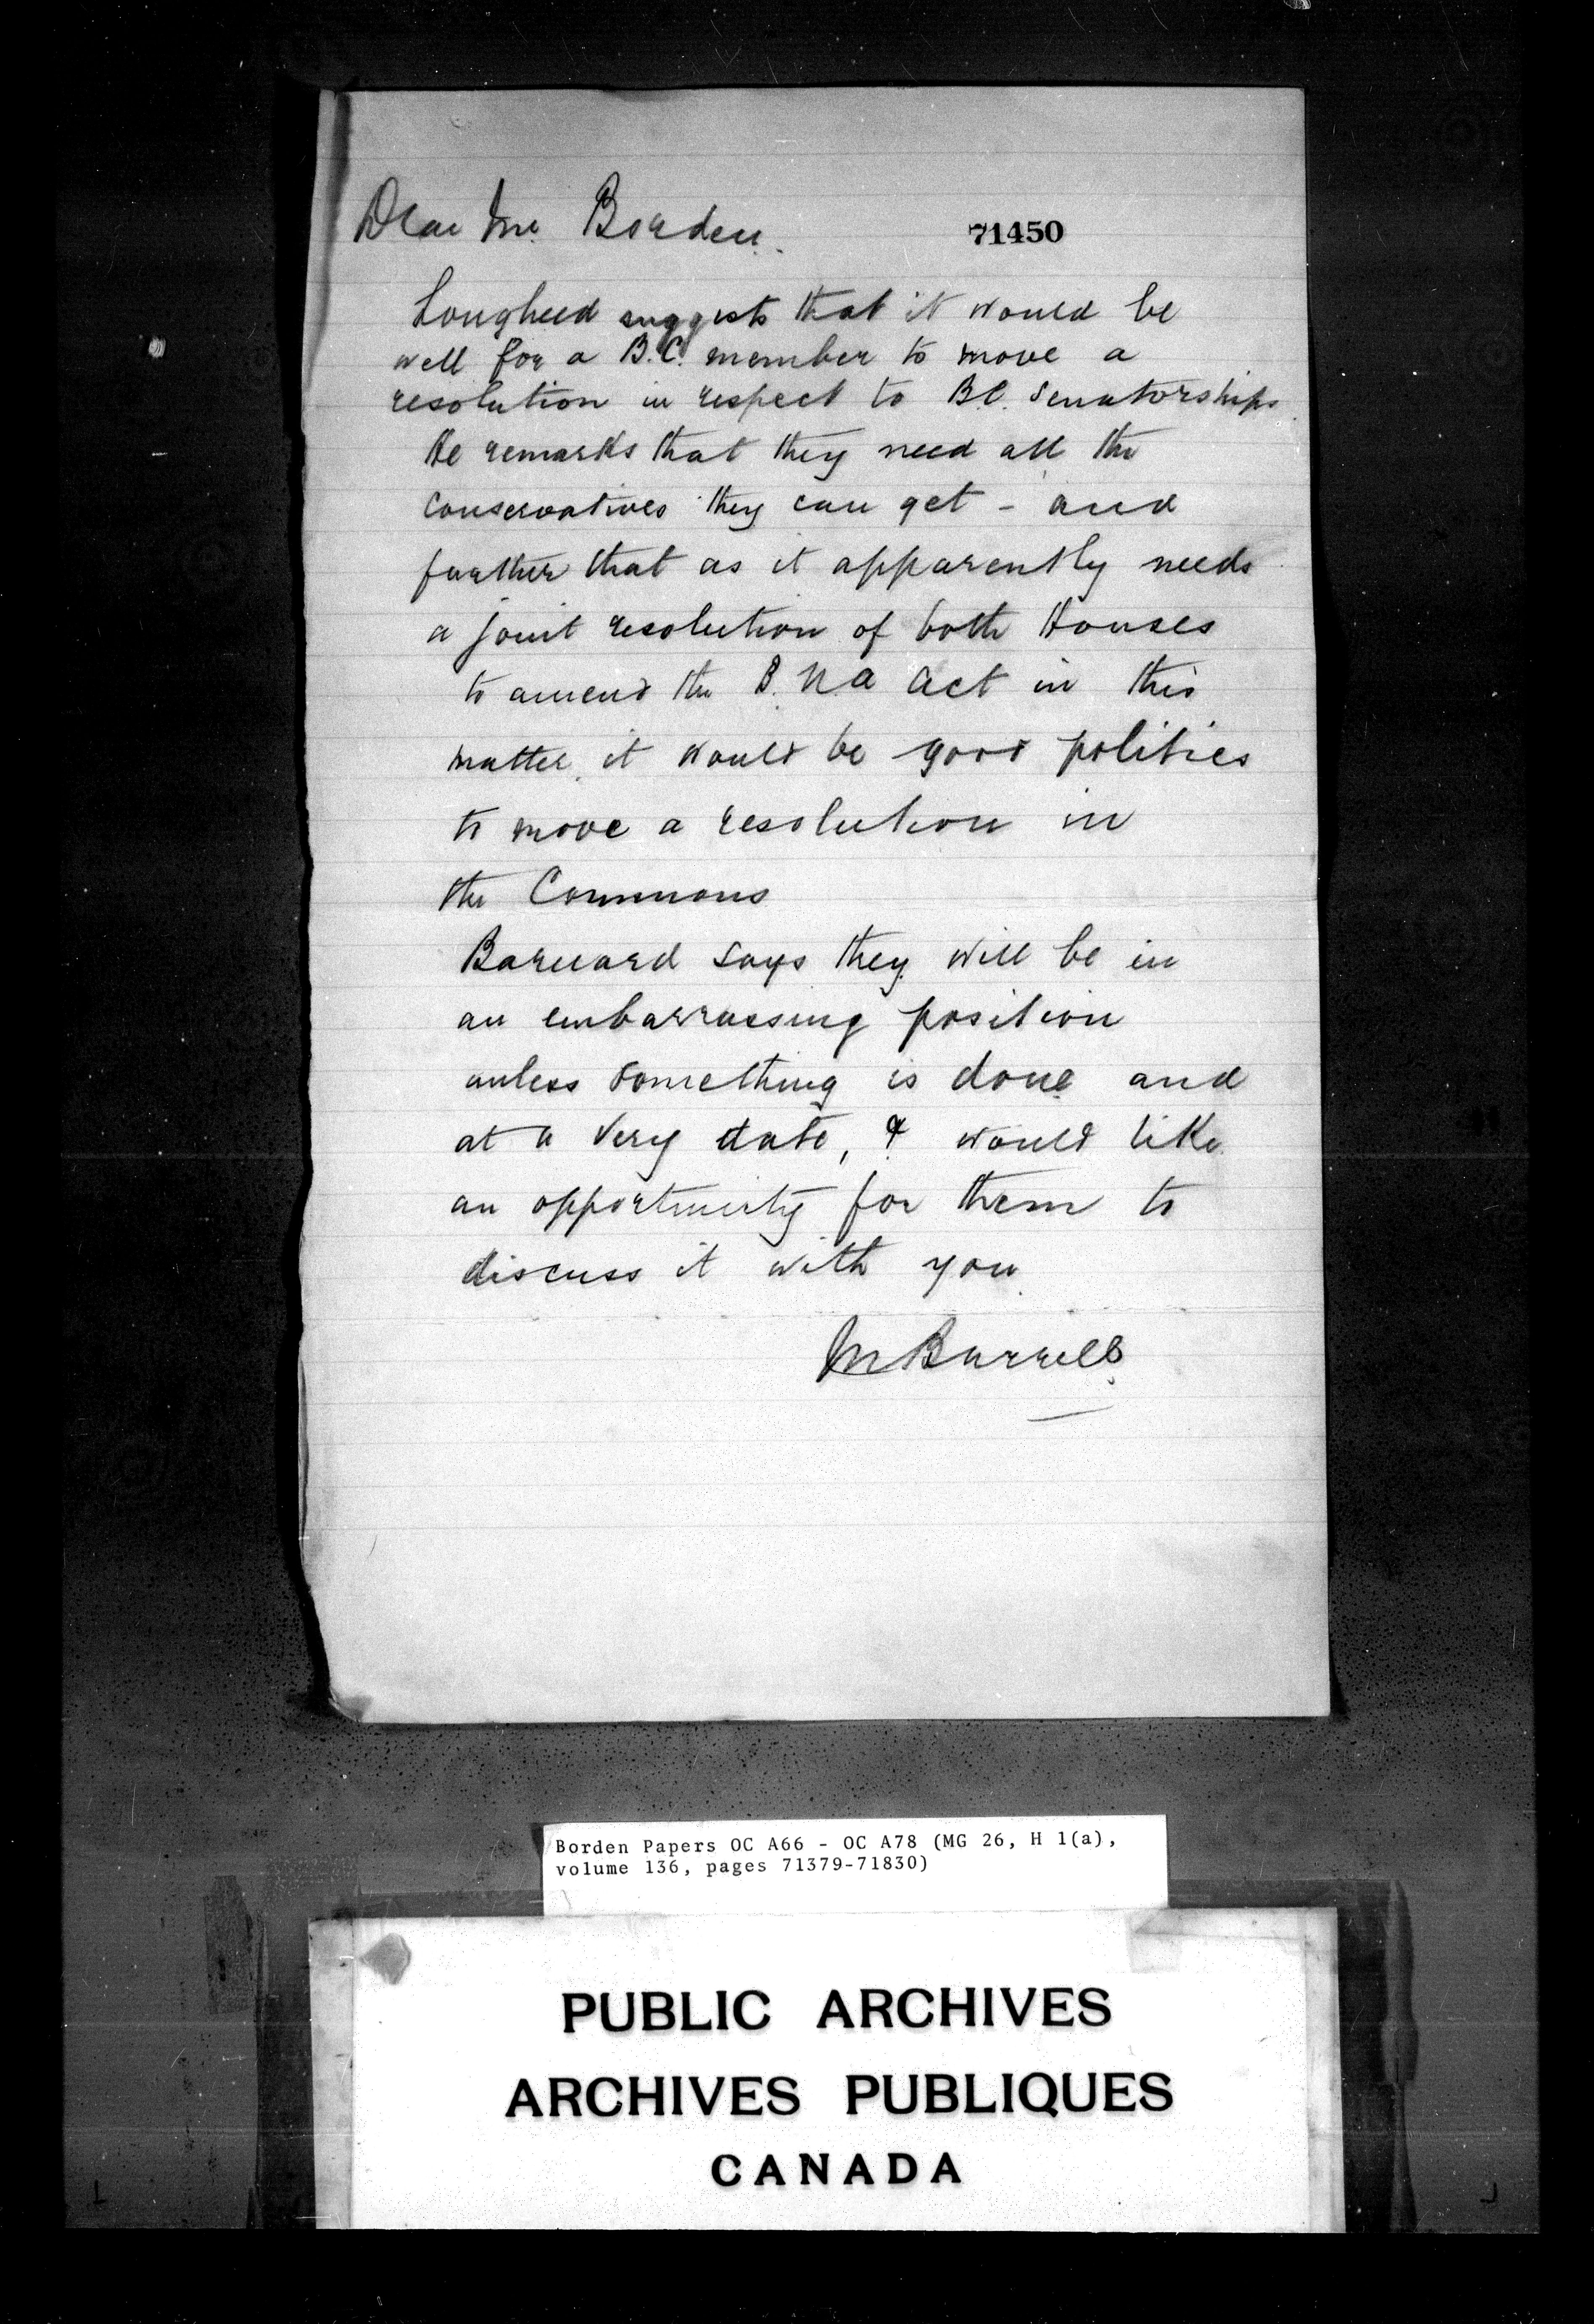 Dear Mr. Borden.
71450
Lougheed suggests that it would be
well for a B.C. member to move a
resolution in respect to B.C. Senatorships
He remarks that they need all the
Conservatives they can get - and
further that as it apparently needs
a joint resolution of both Houses
to amend the B.N.A Act in this
matter, it would be good politics
to move a resolution in
the Commons
Barnard says they will be in
an embarrassing position
unless something is done and
at a very date, & would like
an opportunity for them to
discuss it with you
M Burrell.
Borden Papers OC A66 - OC A78 (MG 26, H 1(a),
volume 136, pages 71379-71830)
PUBLIC ARCHIVES
ARCHIVES PUBLIQUES
CANADA